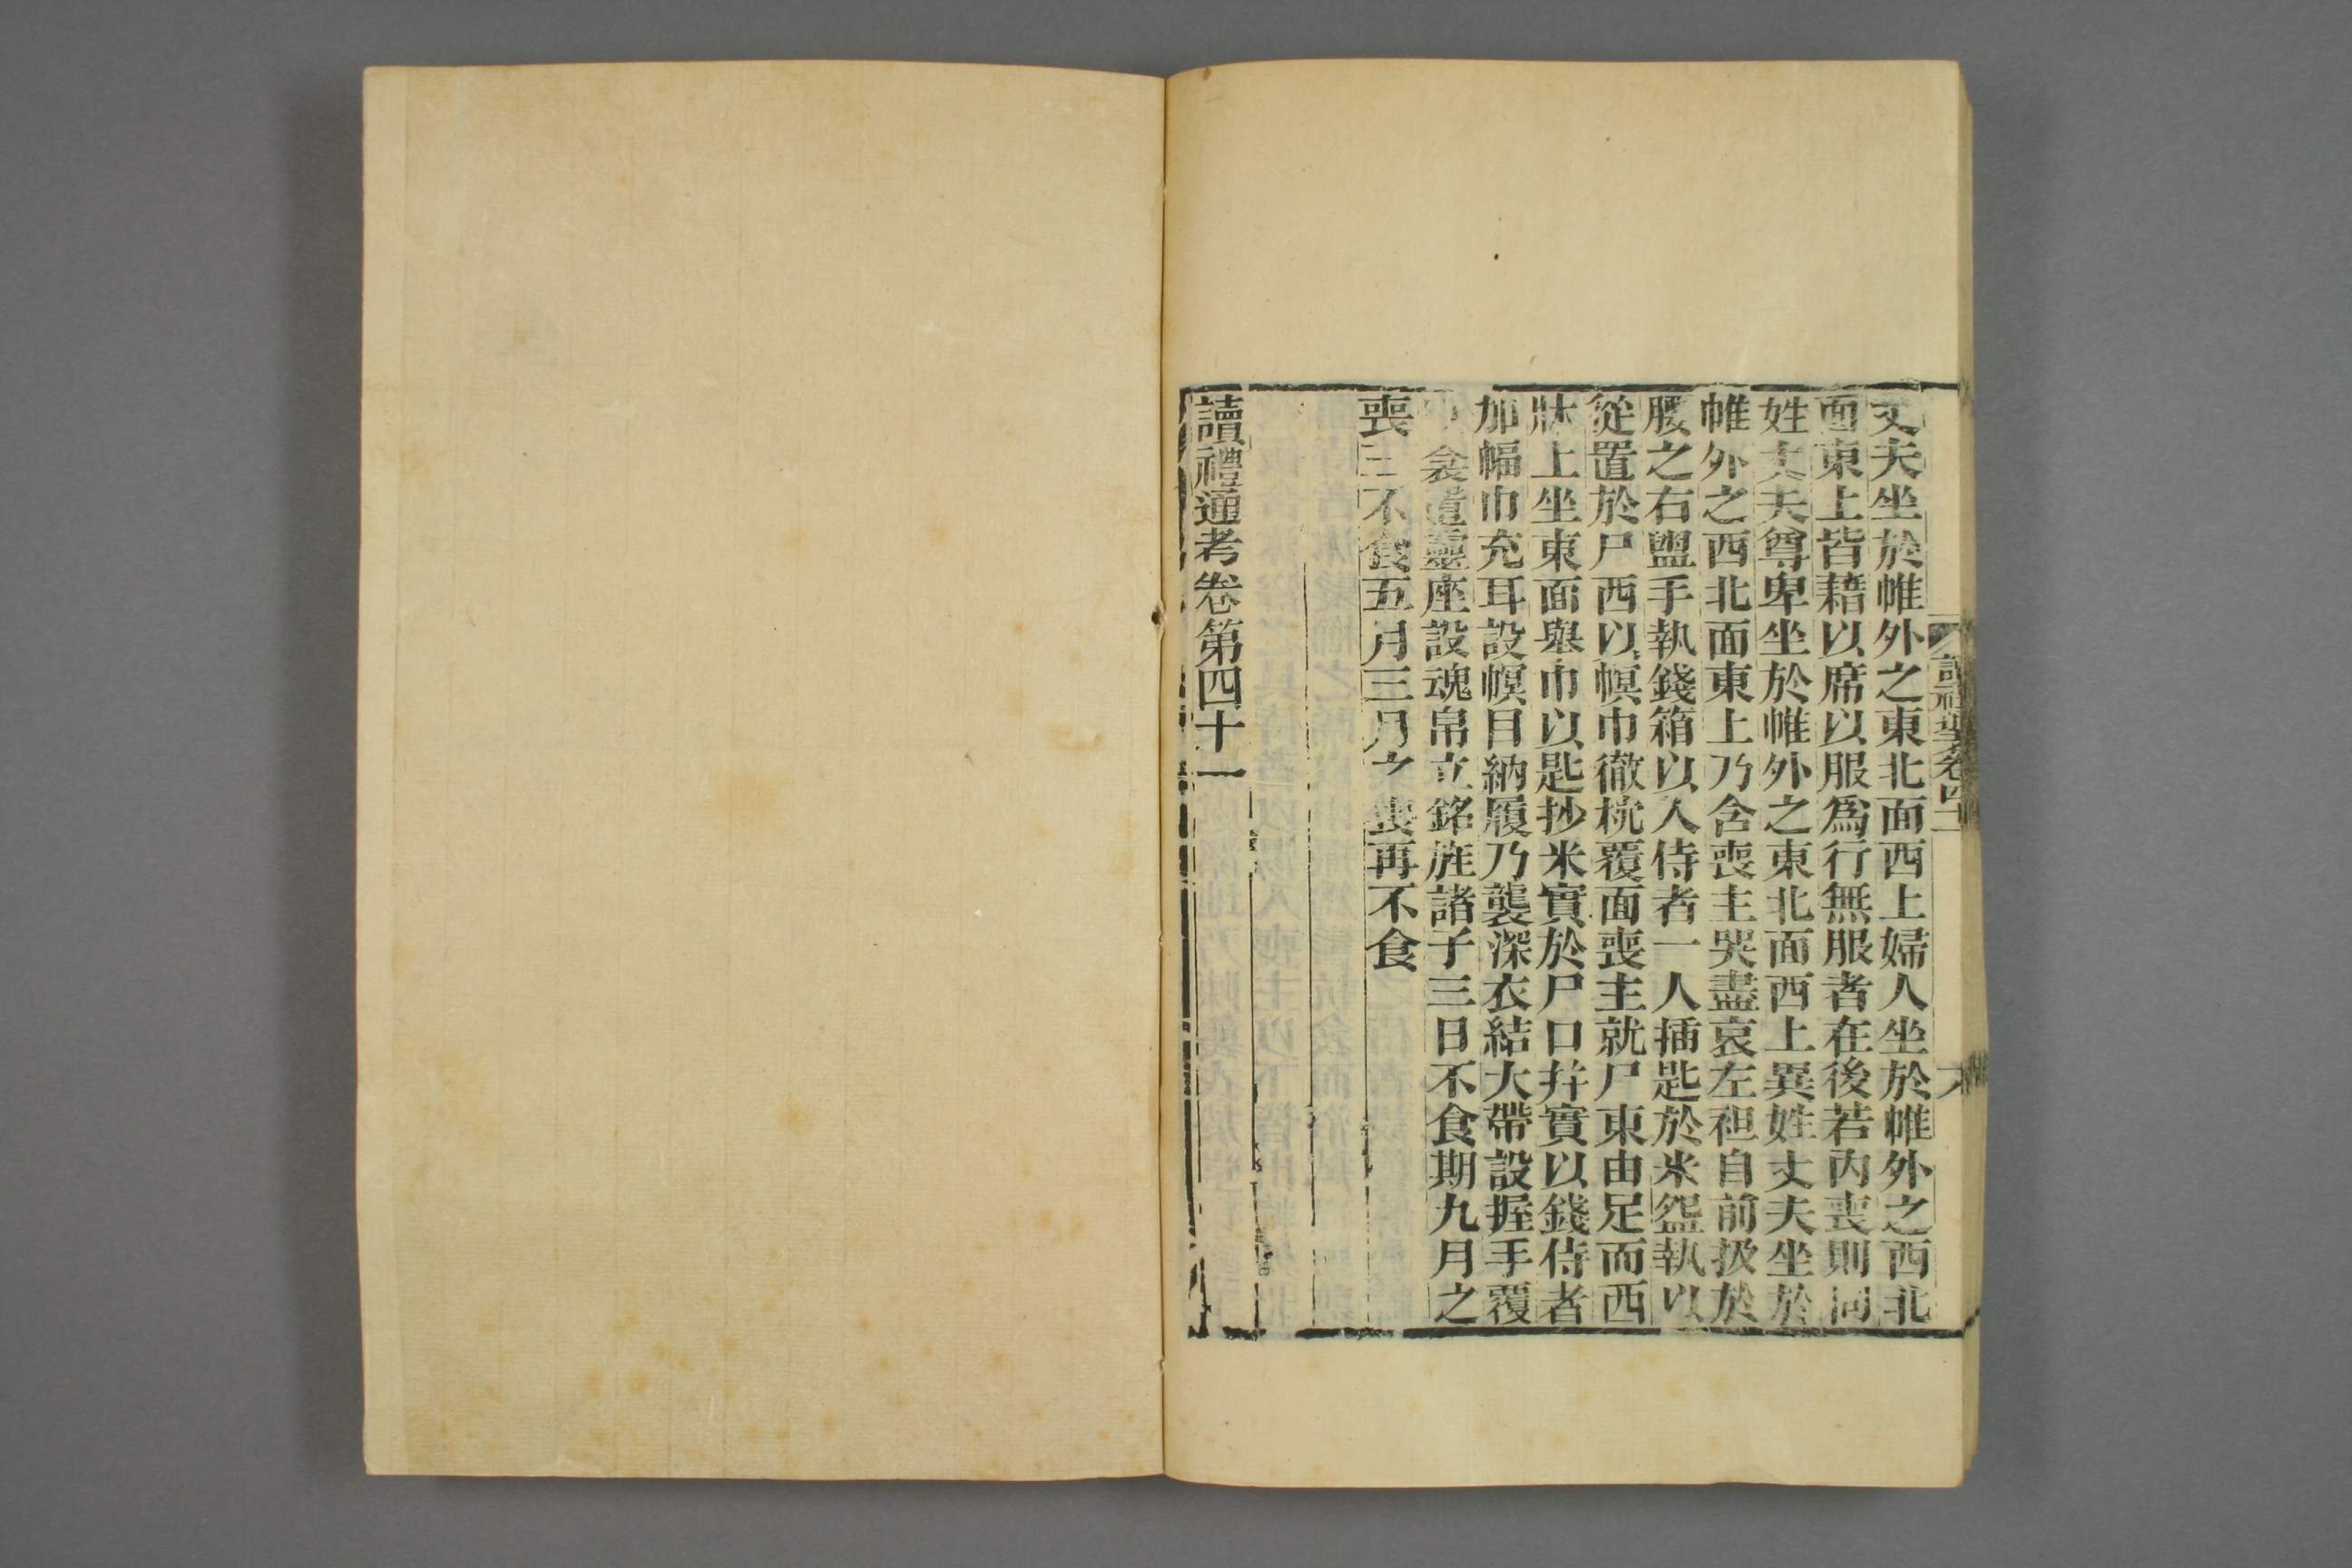 丈夫坐於帷外之東北面西上婦人坐於帷外之西北
面東上皆藉以席以服爲行無服者在後若內喪則同
姓丈夫尊卑坐於帷外之東北面西上異姓丈夫坐於
帷外之西北面東上乃含喪主哭盡哀左袒自前扱於
腰之右盥手執錢箱以入侍者一人插匙於米盌執以
從置於尸西以幎巾徹枕覆面喪主就尸東由足而西
牀上坐東面舉巾以匙抄米實於尸口并實以錢侍者
加幅巾充耳設幎目納履乃襲深衣結大帶設握手覆
衾置靈座設魂帛立銘旌諸子三日不食期九月之
喪三不食五月三月之喪再不食
讀禮通考卷第四十一